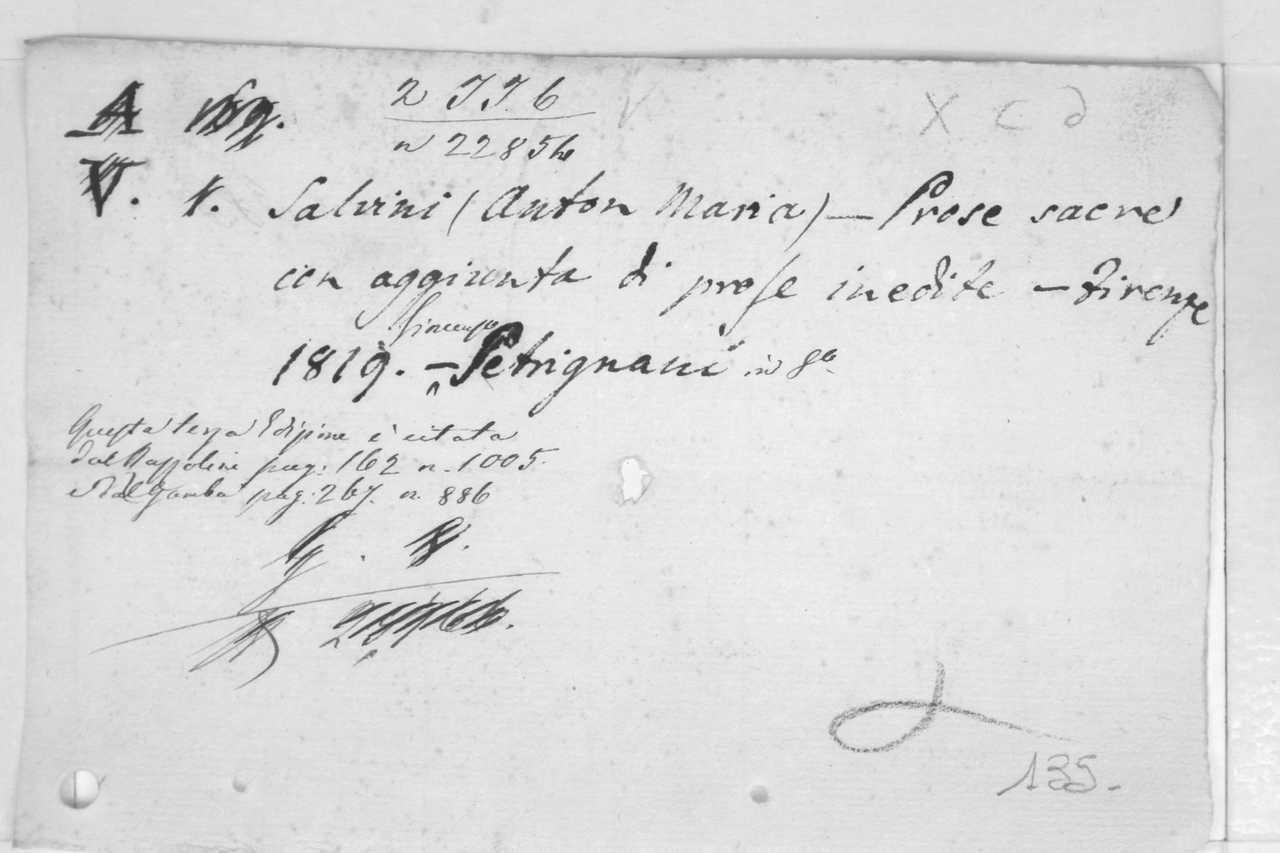 2 JJ 6
n 22854
X C d
Salvini (Anton Maria) — Prose sacre
con aggiunta di prose inedite — Firenze
Vincenzo
1819. — Petrignani in 8°
Questa terza Edizione è citata
dal Razzolini pag: 162 n. 1005.
e dal Gamba pag: 267. n. 886
135.